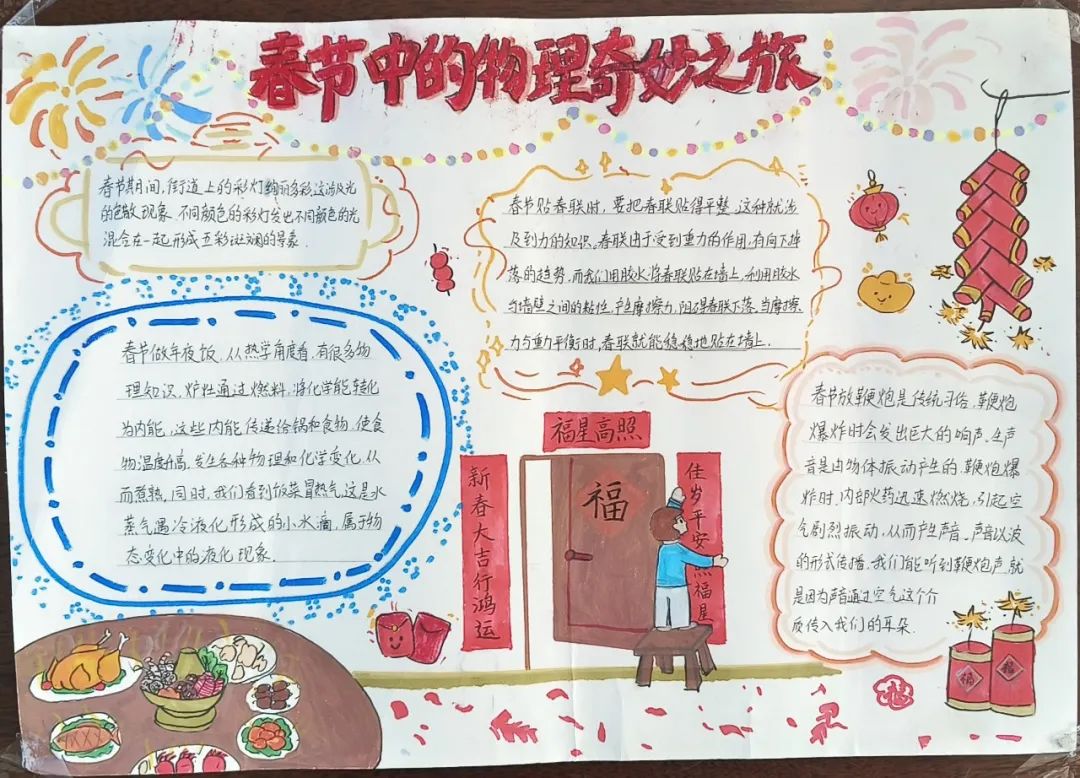 春节中的物理奇妙之旅
春节期间，街道上的彩灯绚丽多彩，这涉及光
的色散现象。不同颜色的彩灯发出不同颜色的光
混合在一起，形成五彩斑斓的景象．
春节贴春联时，要把春联贴得平整，这种就涉
及到力的知识。春联由于受到重力的作用，有向下掉
落的趋势，而我们用胶水将春联贴在墙上，利用胶水
与墙壁之间的粘性，产生摩擦力，阻碍春联下落，当摩擦
力与重力平衡时，春联就能稳稳地贴在墙上．
春节做年夜饭，从热学角度看，有很多物
理知识，炉灶通过燃料，将化学能转化
为内能，这些内能传递给锅和食物，使食
物温度升高，发生各种物理和化学变化，从
而煮熟，同时，我们看到饭菜冒热气，这是水
蒸气遇冷液化形成的小水滴，属于物
态变化中的液化现象．
春节放鞭炮是传统习俗，鞭炮
爆炸时会发出巨大的响声，生声
音是由物体振动产生的，鞭炮爆
炸时，内部火药迅速燃烧，引起空
气剧烈振动，从而产生声音。声音以波
的形式传播，我们能听到鞭炮声，就
是因为声音通过空气这个介
质传入我们的耳朵．
福星高照
新春大吉行鸿运
福
佳岁平安 照福星
福
福